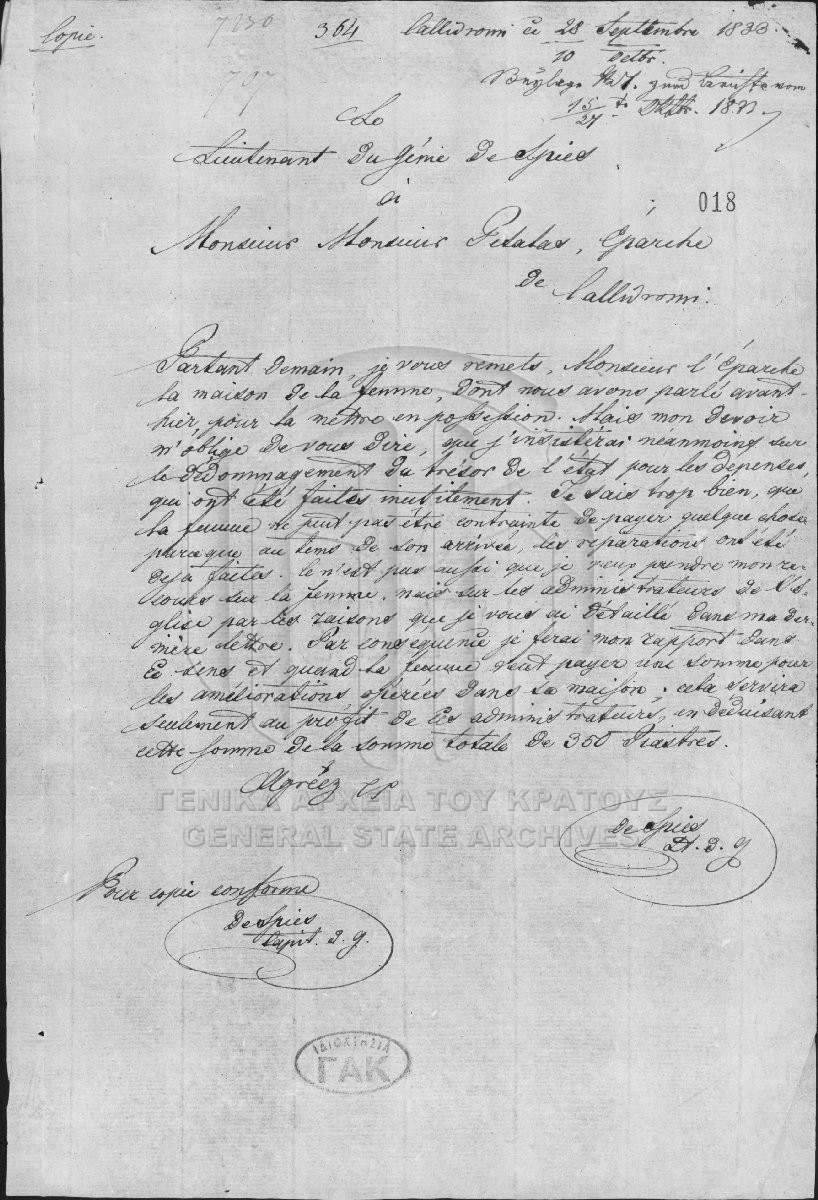 Copie.
7130
364
Callidromi ce 28 Septembre 1833.
10 Octbr.
797
Beylage zum Berichte vom
15/27 t. Oktbr. 1833
Le
Lieutenant du génie de Spies
à
018
Monsieur Monsieur Petalas, Éparche
de Callidromi.
Partant demain, je vous remets, Monsieur l'Éparche
la maison de la femme, dont nous avons parlé avant-
hier, pour la mettre en possession. Mais mon devoir
m'oblige de vous dire, que j'insisterai néanmoins sur
le dédommagement du trésor de l'état pour les dépenses,
qui ont été faites inutilement. Je sais trop bien, que
la femme ne peut pas être contrainte de payer quelque chose
parceque au tems de son arrivée, les réparations ont été
déjà faites. Ce n'est pas aussi que je veux prendre mon re-
cours sur la femme, mais sur les administrateurs de l'é-
glise par les raisons que je vous ai détaillé dans ma der-
nière lettre. Par conséquence je ferai mon rapport dans
ce sens et quand la femme veut payer une somme pour
les améliorations opérées dans sa maison, cela servira
seulement au profit de ces administrateurs, en déduisant
cette somme de la somme totale de 350 Piastres.
Agréez
ΓΕΝΙΚΑ ΑΡΧΕΙΑ ΤΟΥ ΚΡΑΤΟΥΣ
GENERAL STATE ARCHIVES
de Spies
Lt. d. g.
Pour copie conforme
de Spies
Capit. d. g.
ΙΔΙΟΚΤΗΣΙΑ
ΓΑΚ